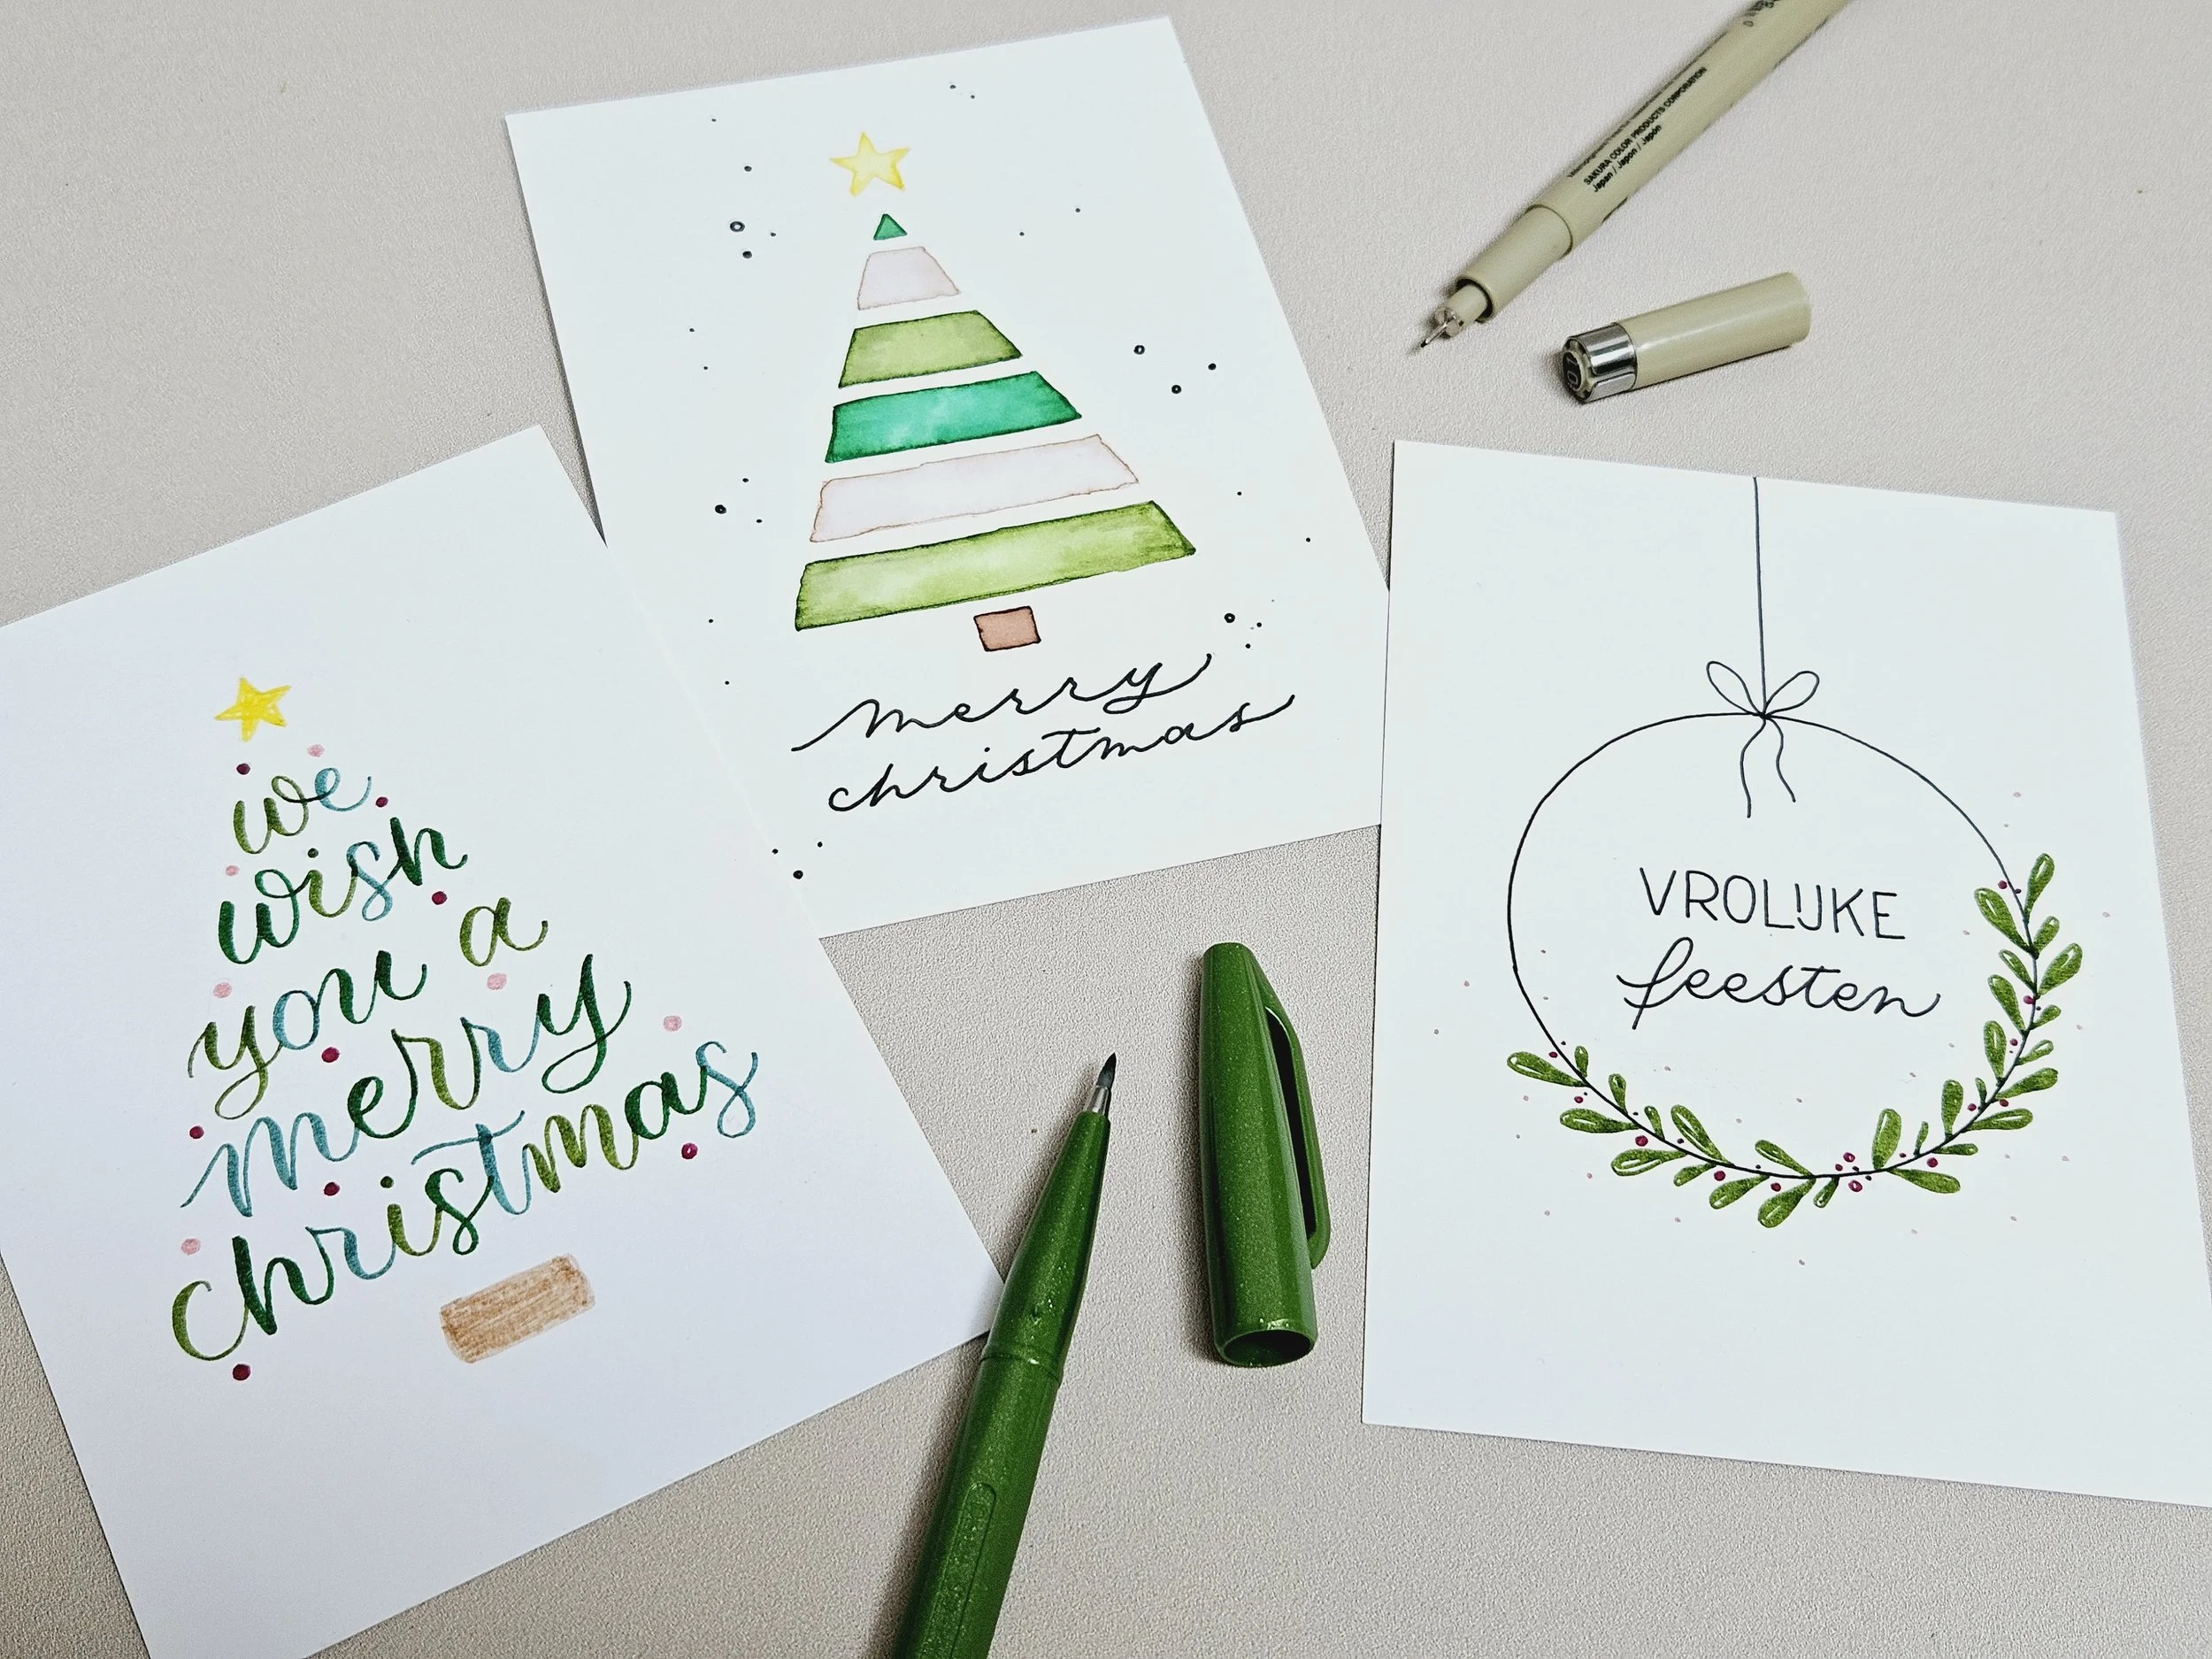 we
wish
you a
merry
christmas
merry
christmas
SAKURA COLOR PRODUCTS CORPORATION
Japan / Japon / Japón
VROLIJKE
feesten